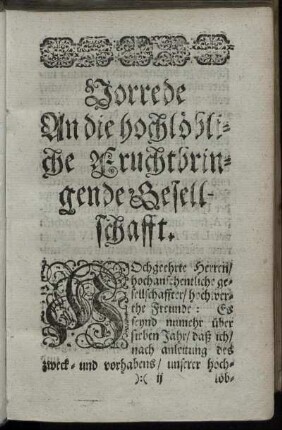 Vorrede
An die hochlöbli-
che Fruchtbrin-
gende Gesell-
schafft.
HOchgeehrte Herren/
hochansehentliche ge-
sellschaffter/ hochwer-
the Freunde: Es
seynd numehr über
sieben Jahr/ daß ich/
nach anleitung des
zweck- und vorhabens/ unserer hoch-
):( ij löb-